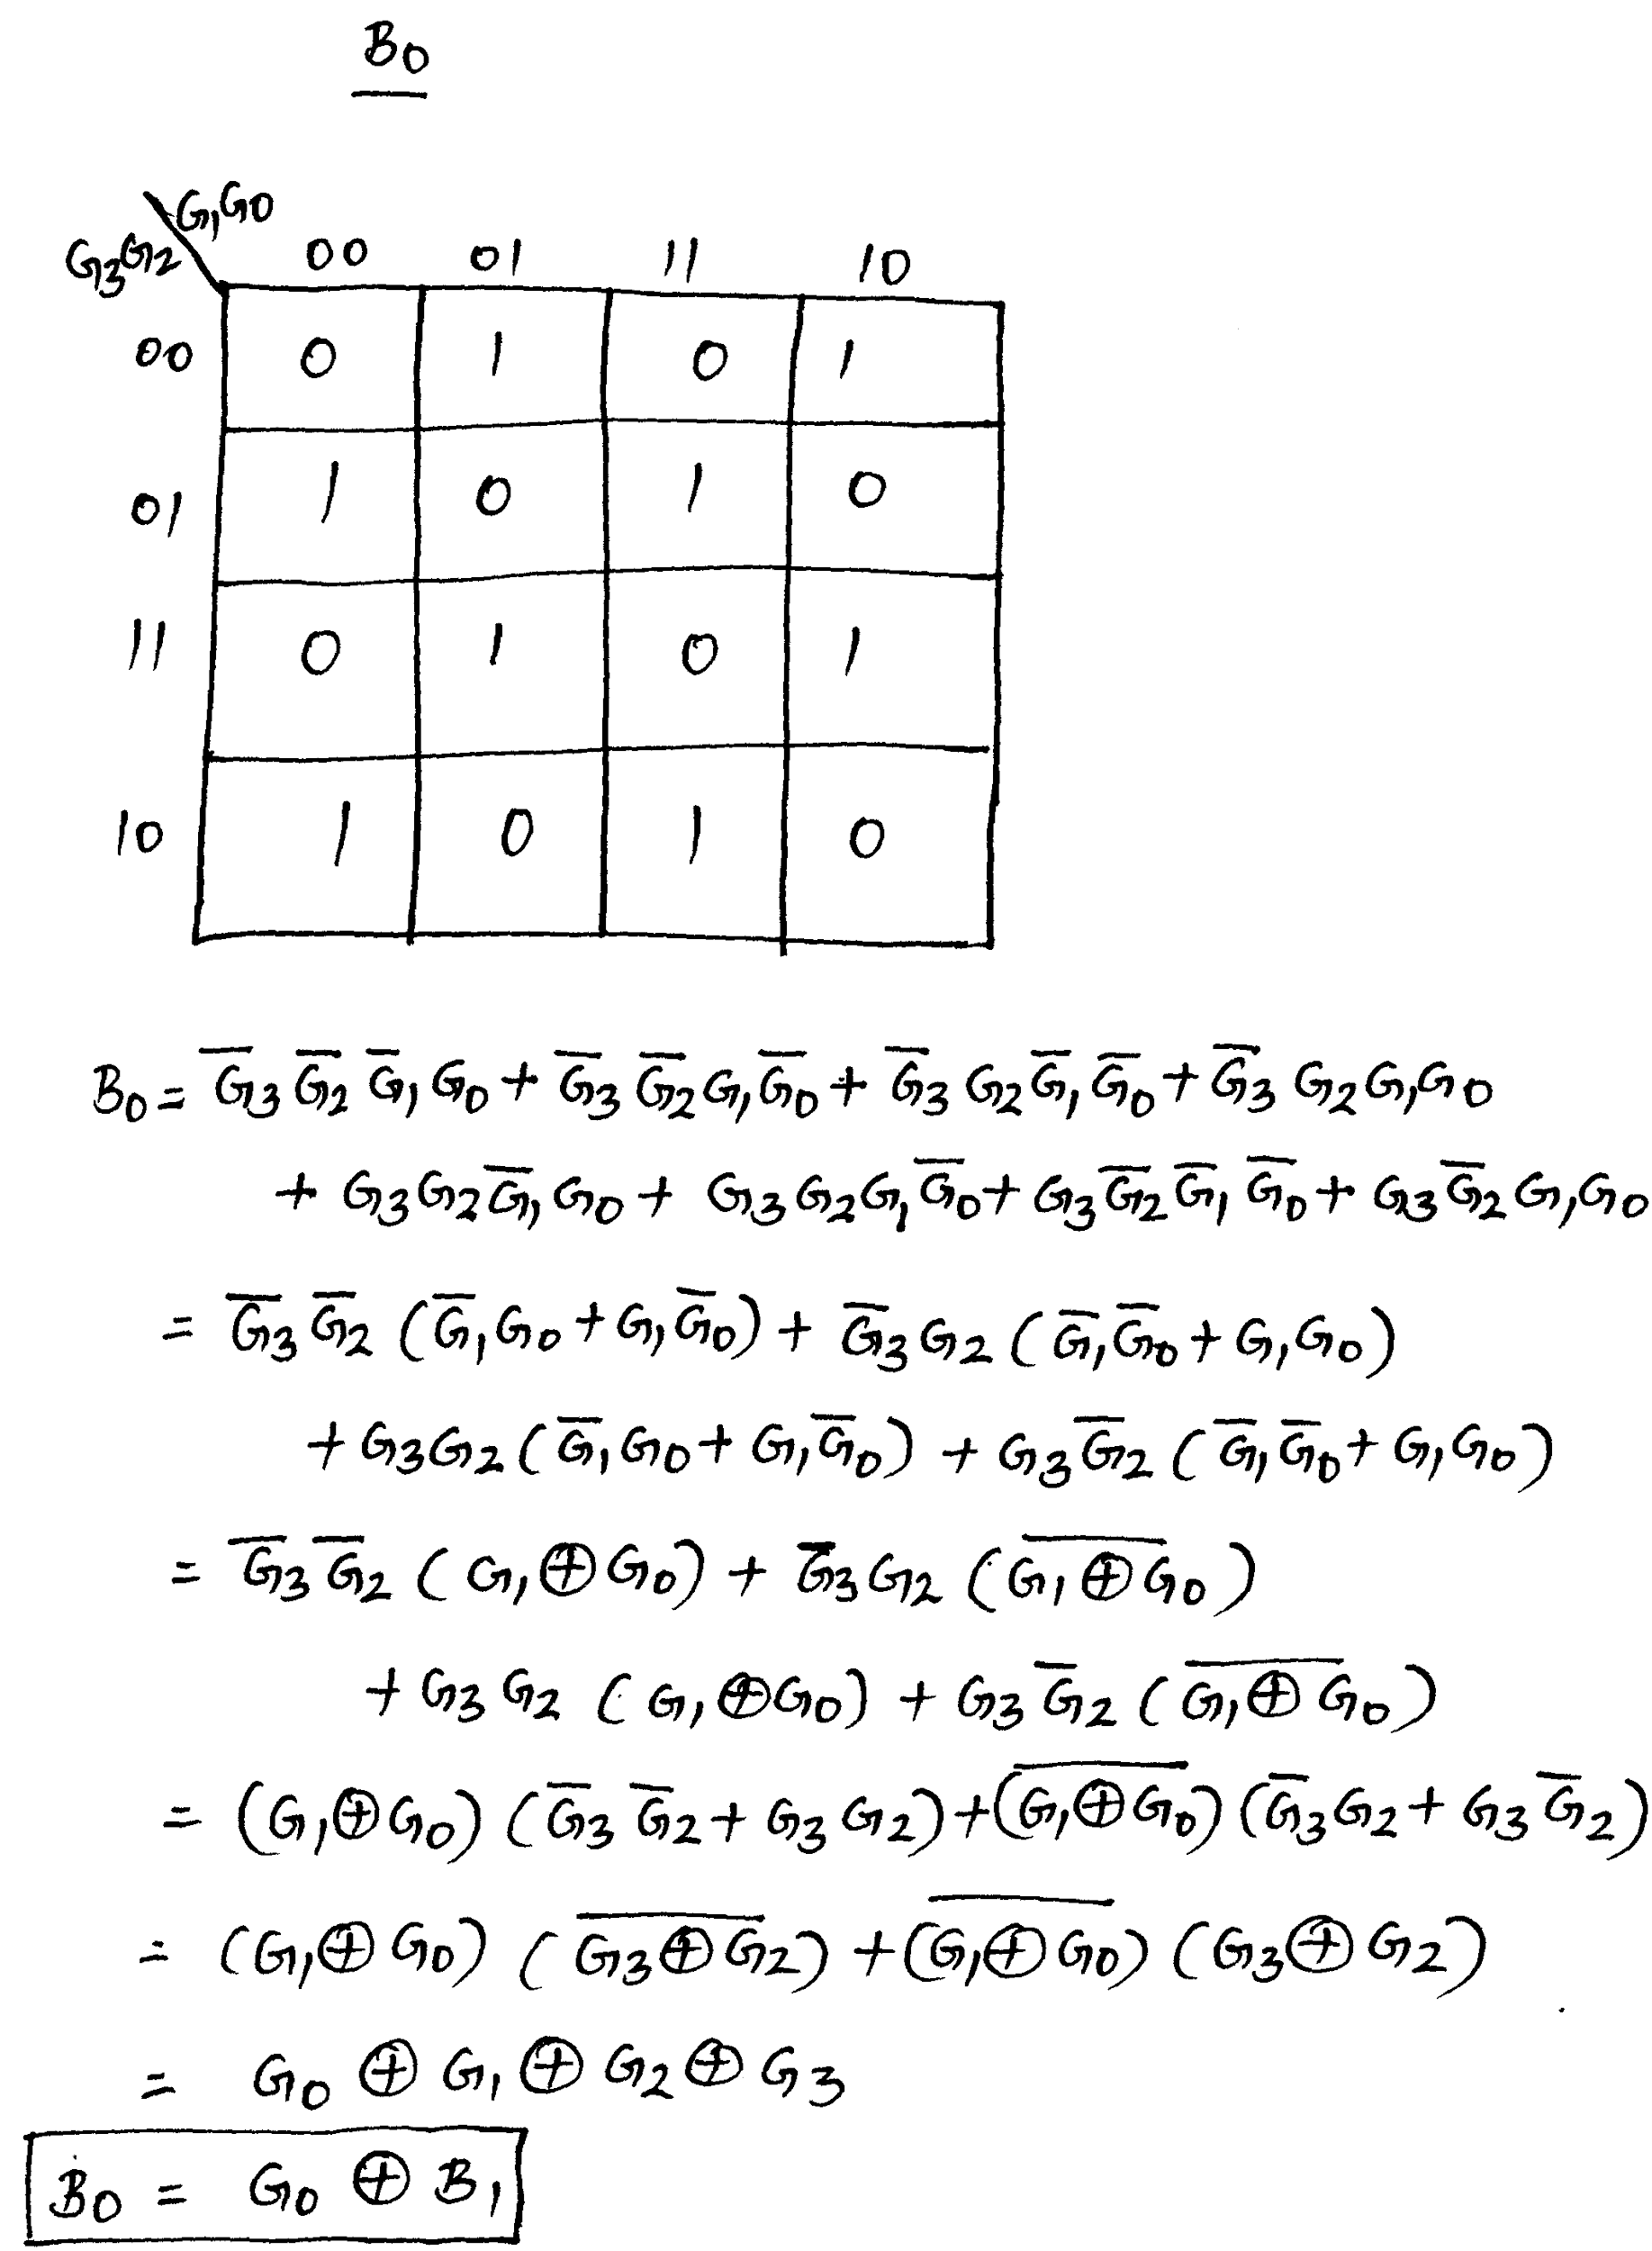 B₀
G₁G₀
G₃G₂ 00 01 11 10
00 0 1 0 1
01 1 0 1 0
11 0 1 0 1
10 1 0 1 0
B₀ = G̅₃ G̅₂ G̅₁ G₀ + G̅₃ G̅₂ G₁ G̅₀ + G̅₃ G₂ G̅₁ G̅₀ + G̅₃ G₂ G₁ G₀
+ G₃ G₂ G̅₁ G₀ + G₃ G₂ G₁ G̅₀ + G₃ G̅₂ G̅₁ G̅₀ + G₃ G̅₂ G₁ G₀
= G̅₃ G̅₂ (G̅₁ G₀ + G₁ G̅₀) + G̅₃ G₂ (G̅₁ G̅₀ + G₁ G₀)
+ G₃ G₂ (G̅₁ G₀ + G₁ G̅₀) + G₃ G̅₂ (G̅₁ G̅₀ + G₁ G₀)
= G̅₃ G̅₂ (G₁ ⊕ G₀) + G̅₃ G₂ (\overline{G₁ ⊕ G₀})
+ G₃ G₂ (G₁ ⊕ G₀) + G₃ G̅₂ (\overline{G₁ ⊕ G₀})
= (G₁ ⊕ G₀) (G̅₃ G̅₂ + G₃ G₂) + (\overline{G₁ ⊕ G₀}) (G̅₃ G₂ + G₃ G̅₂)
= (G₁ ⊕ G₀) (\overline{G₃ ⊕ G₂}) + (\overline{G₁ ⊕ G₀}) (G₃ ⊕ G₂)
= G₀ ⊕ G₁ ⊕ G₂ ⊕ G₃
B₀ = G₀ ⊕ B₁